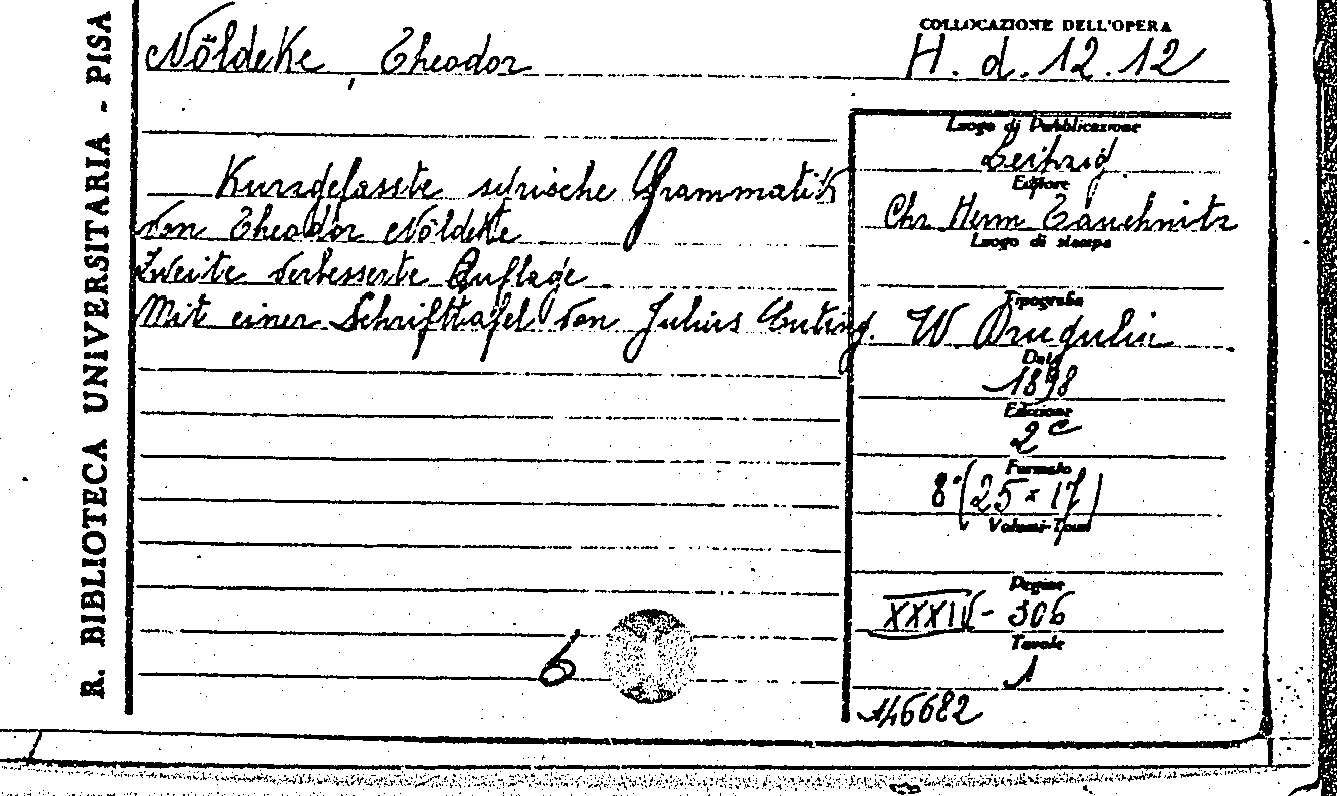 R. BIBLIOTECA UNIVERSITARIA - PISA
Nöldeke, Theodor
COLLOCAZIONE DELL'OPERA
H. d. 12.12
Kurzgefasste syrische Grammatik
von Theodor Nöldeke
Zweite verbesserte Auflage
Mit einer Schrifttafel von Julius Euting.
Luogo di Pubblicazione
Leipzig
Editore
Chr Herm Tauchnitz
Luogo di stampa
Tipografia
W. Drugulin
Data
1898
Edizione
2ᵃ
Formato
8° (25 × 17)
Volumi-Tomi
Pagine
XXXIV - 306
Tavole
1
146682
6